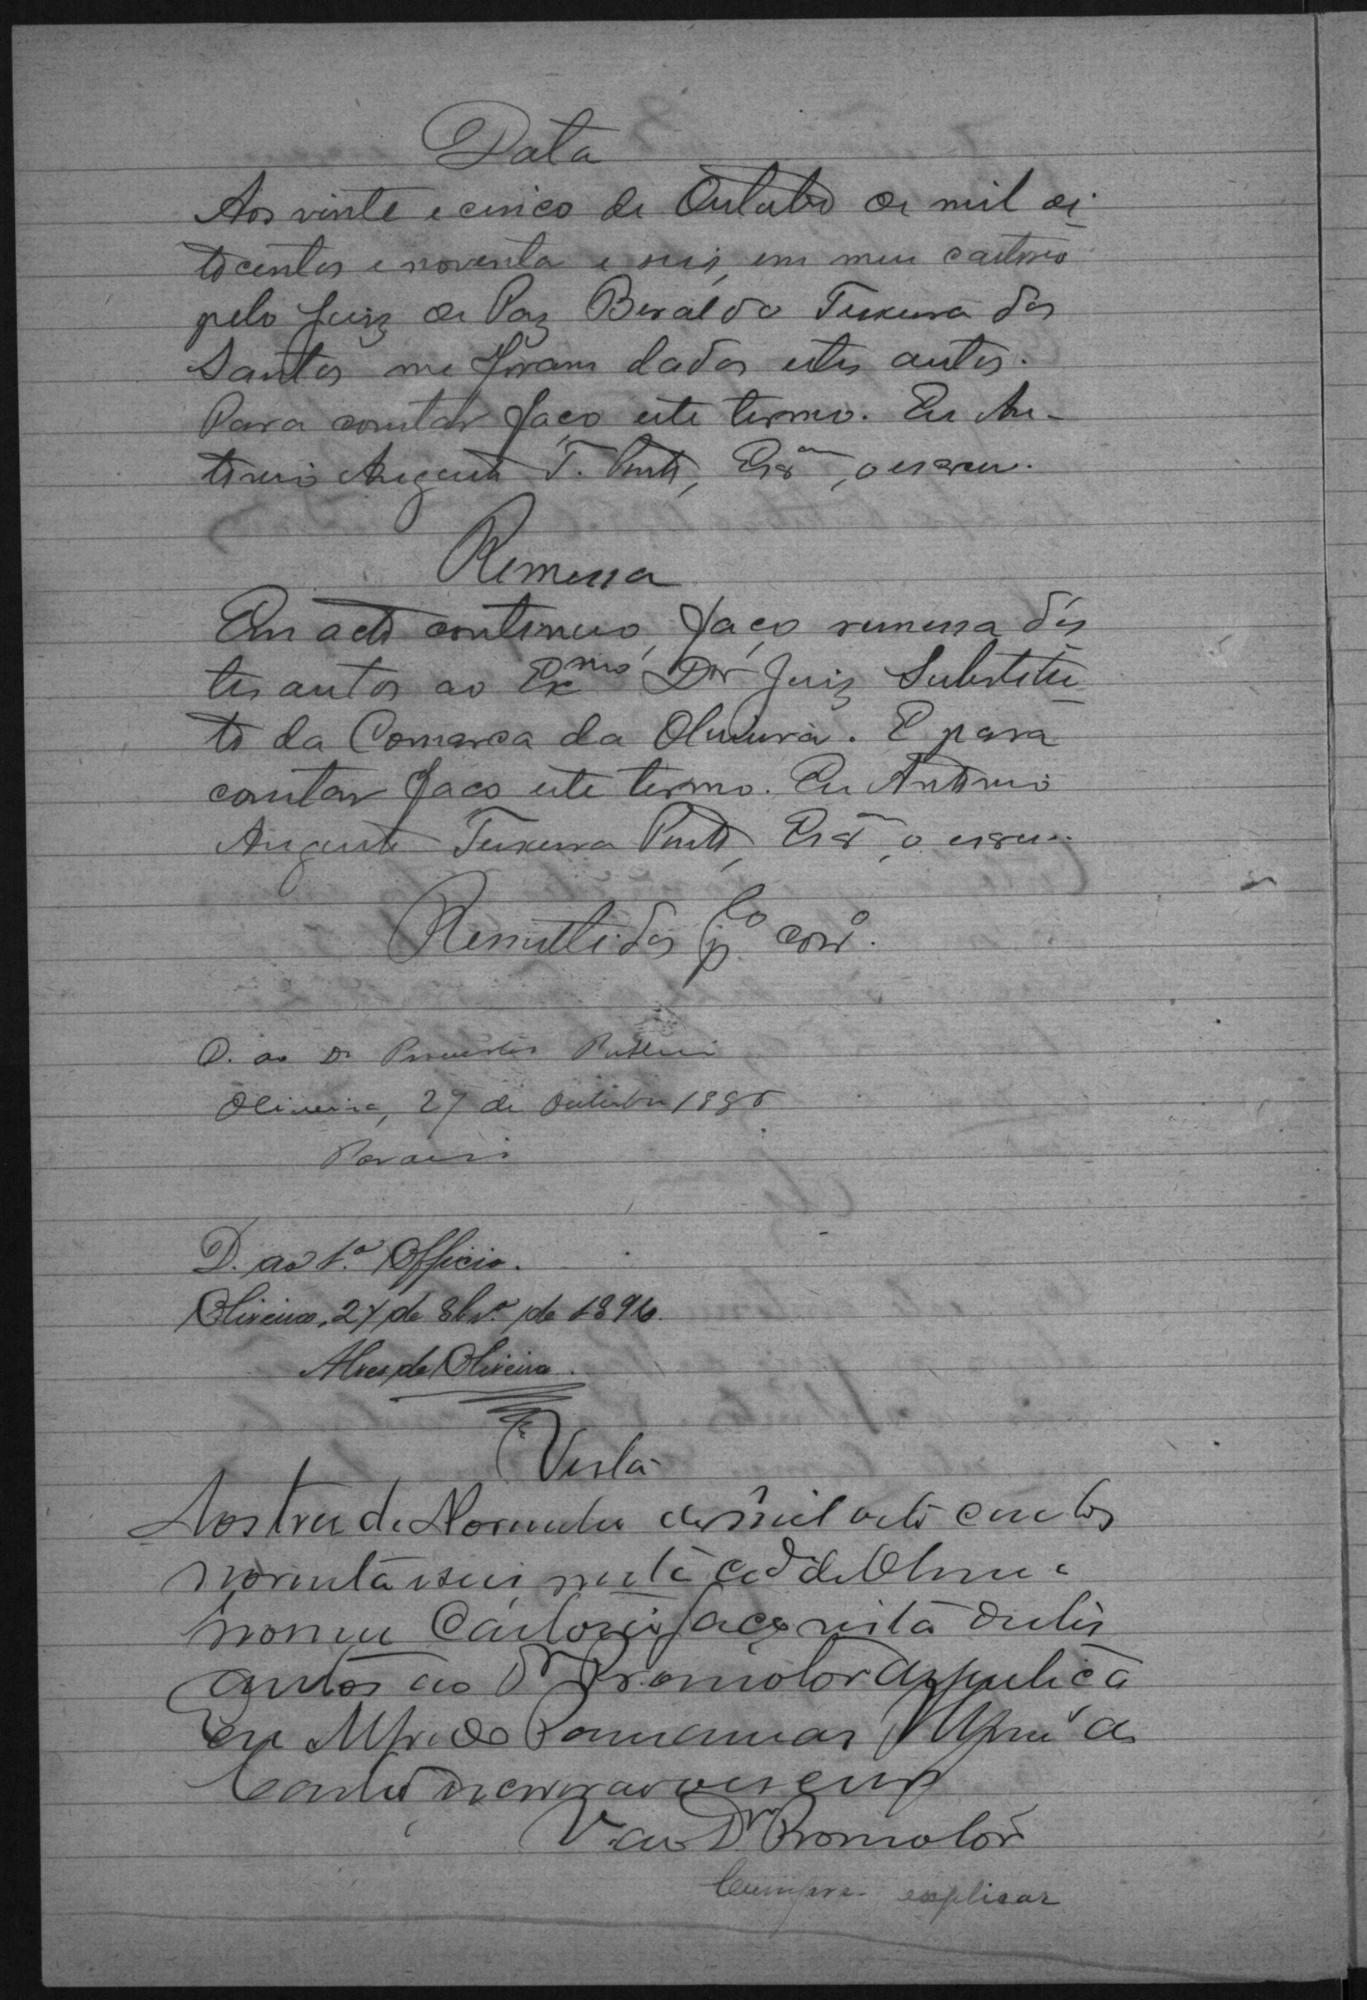 Data
Aos vinte e cinco de Outubro de mil oi-
tocentos e noventa e seis, em meu cartorio
pelo Juiz de Paz Beraldo Teixeira dos
Santos me foram dados estes autos.
Para constar faço este termo. Eu An-
tonio Augusto T. Pinto, Escrᵃᵐ, o escrevi.
Remessa
Em acto continuo, faço remessa dés
tes autos ao Exᵐᵒ Dʳ Juiz Substitu
to da Comarca da Oliveira. E para
constar faço este termo. Eu Antonio
Augusto Teixeira Pinto, Escrᵃᵐ, o escrevi.
Remettidos p.ˡᵒ corrº.
D. ao Dr Promotor
Oliveira, 27 de Outubro 1896
D. ao 1.º Officio.
Oliveira, 27 de 8br.º de 1896.
Alves de Oliveira.
Vista
Aos tres de Novembro de mil oito centos
noventa e seis nesta cidᵉ de Oliveira
no meu Cartorio faço vista destes
autos ao Dʳ Promotor da Justiça
Eu Alfredo
Castro escrivão o escrevi
V. ao Dʳ Promotor
Cumpre explicar